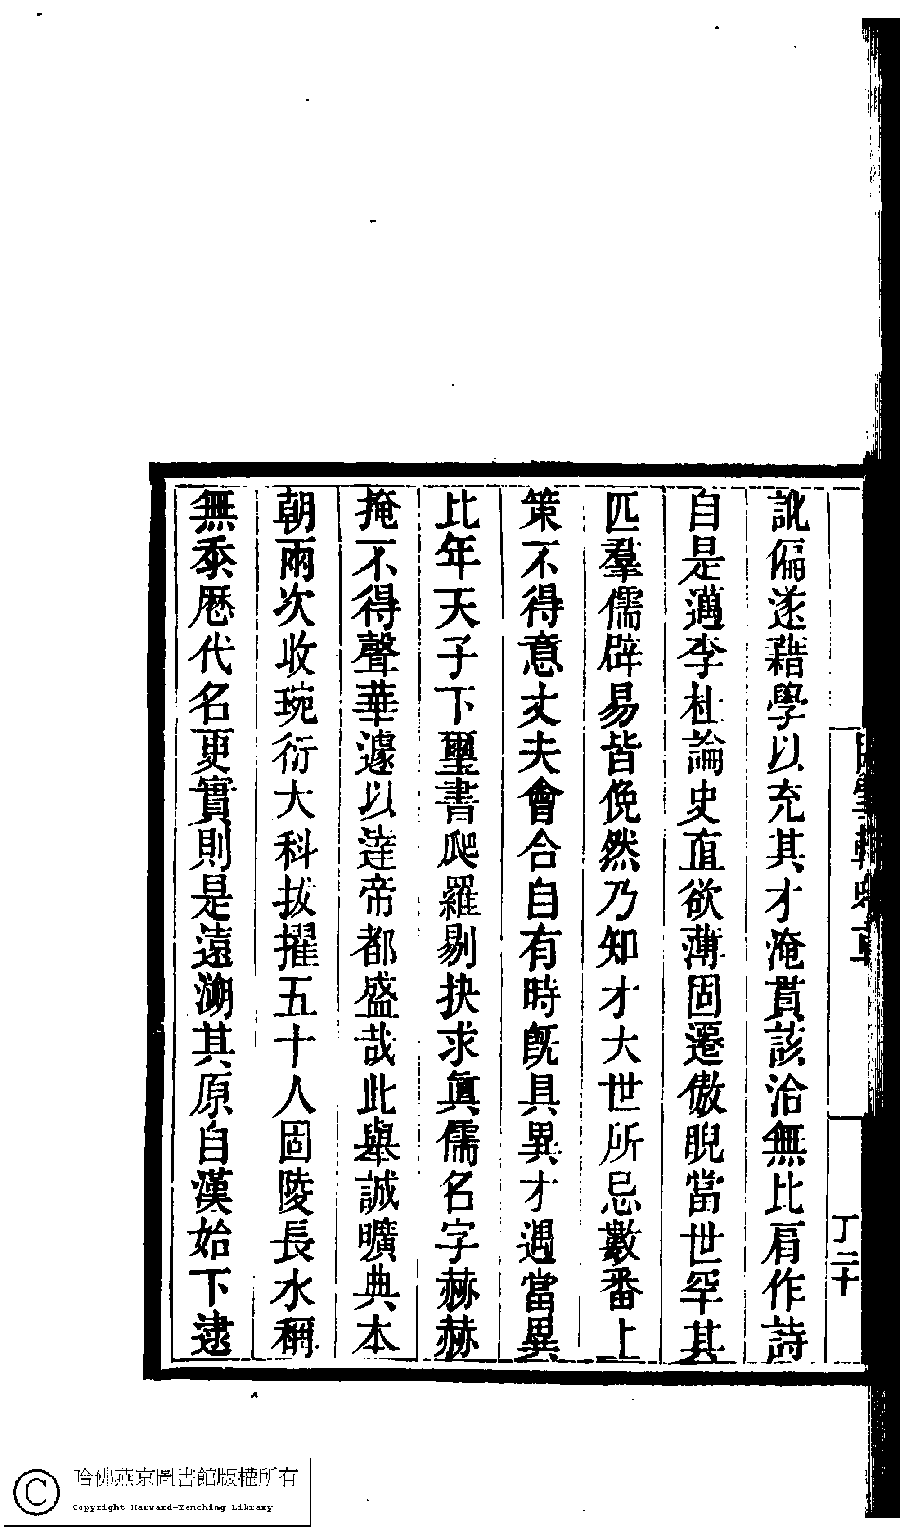 訛偏遂藉學以充其才淹貫該洽無比肩作詩
自是邁李杜論史直欲薄固遷傲睨當世罕其
匹羣儒辟易皆俛然乃知才大世所忌數番上
策不得意丈夫會合自有時旣具異才遇當異
比年天子下璽書爬羅剔抉求眞儒名字赫赫
掩不得聲華遽以達帝都盛哉此舉誠曠典本
朝兩次收琬衍大科拔擢五十人固陵長水稱
無忝歷代名更實則是遠溯其原自漢始下逮
哈佛燕京圖書館版權所有
Copyright Harvard-Yenching Library